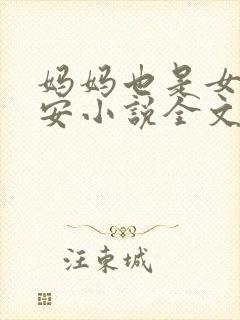 妈妈也是女
安小说全文
汪东城